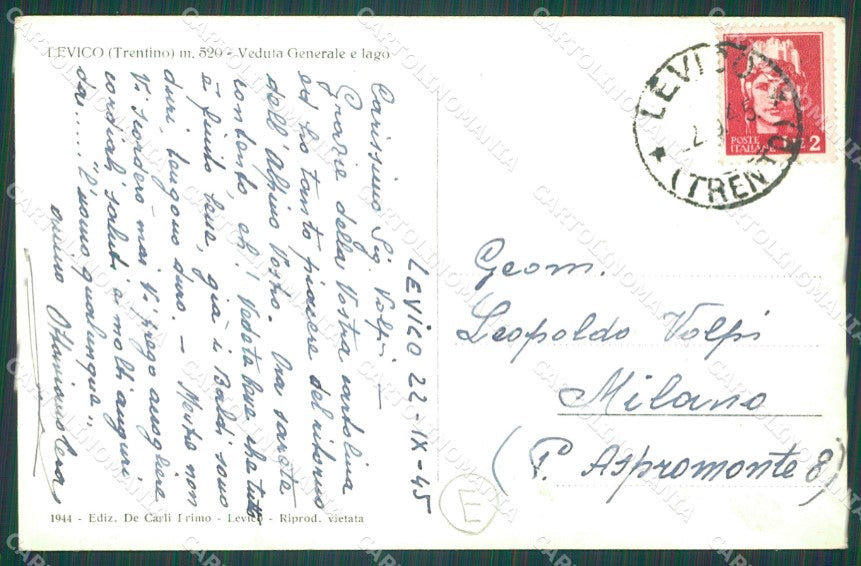 LEVICO (Trentino) m. 520 - Veduta Generale e lago
LEVICO 22-IX-45
Carissimo Sig. Volpi -
Grazie della Vostra cartolina
ed ho tanto piacere del ritorno
dell'Alpino Vostro. Ora sarete
contento, eh! Vedete bene che tutto
è finito bene, già i Baldi sono
duri, tengono duro. - Mentre non
Vi scorderò mai Vi prego accogliere
cordiali saluti ai molti auguri
dal..... "L'uomo qualunque"
1944 - Ediz. De Carli Primo - Levico - Riprod. vietata
LEVICO
(TRENTO)
POSTE ITALIANE
LIRE 2
Geom.
Leopoldo Volpi
Milano
(P. Aspromonte 8)
E
CARTOLINOMANIA